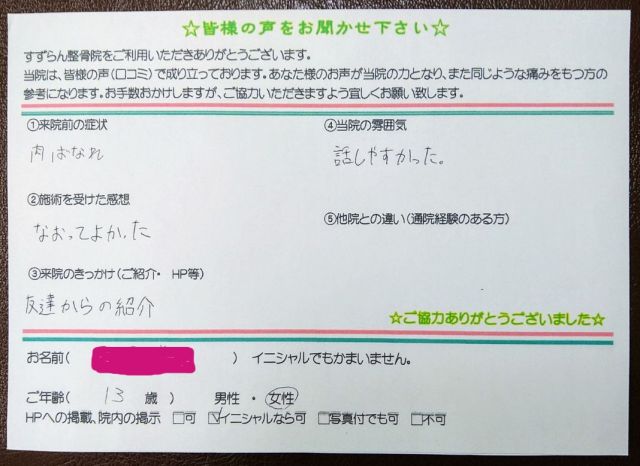 ☆皆様の声をお聞かせ下さい☆
すずらん整骨院をご利用いただきありがとうございます。
当院は、皆様の声(口コミ)で成り立っております。あなた様のお声が当院の力となり、また同じような痛みをもつ方の
参考になります。お手数おかけしますが、ご協力いただきますよう宜しくお願い致します。
①来院前の症状
肉ばなれ
②施術を受けた感想
なおってよかった
③来院のきっかけ(ご紹介・ HP等)
友達からの紹介
④当院の雰囲気
話しやすかった。
⑤他院との違い(通院経験のある方)
☆ご協力ありがとうございました☆
お名前( ) イニシャルでもかまいません。
ご年齢( 13 歳 ) 男性 ・ 女性
HPへの掲載、院内の掲示 □可 ☑イニシャルなら可 □写真付でも可 □不可